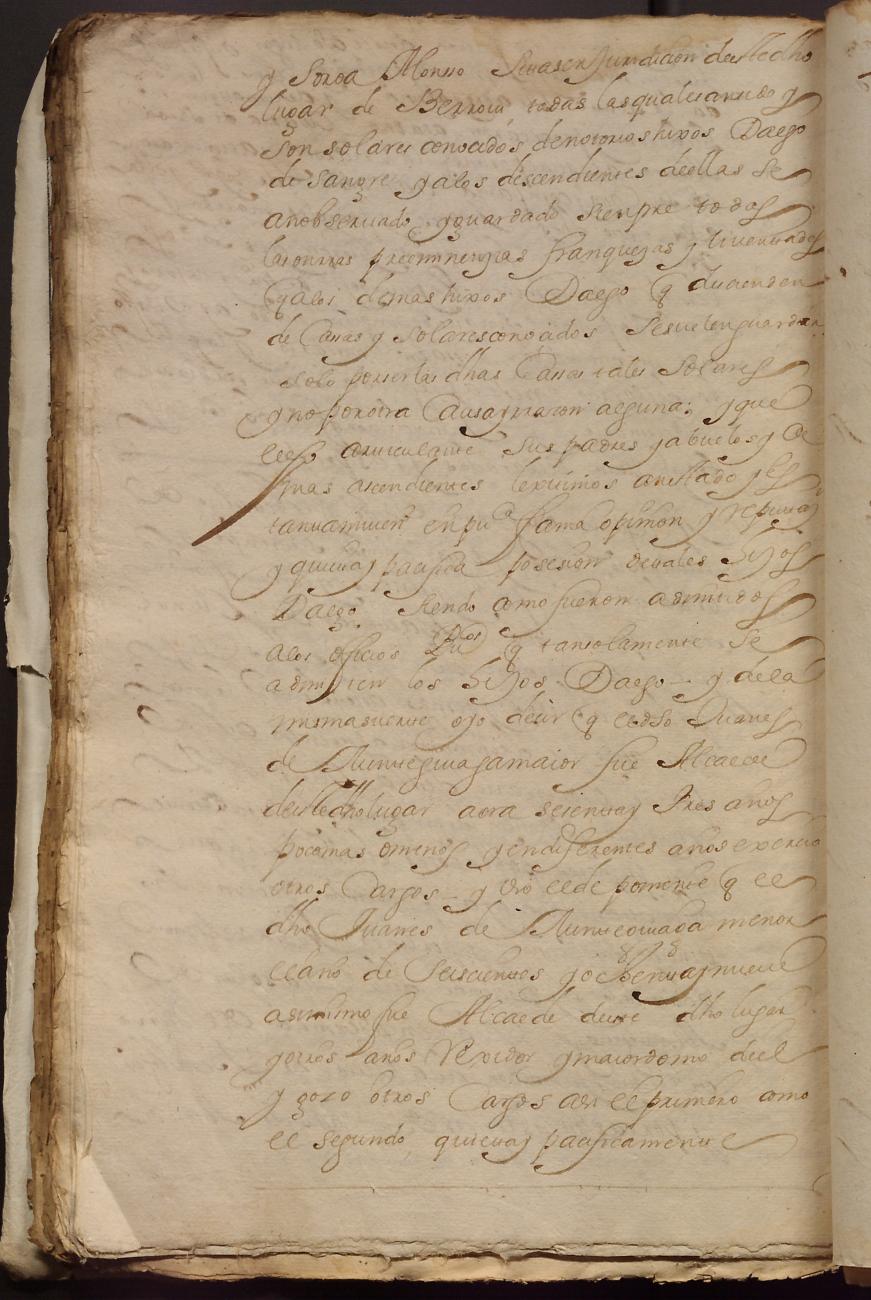 y Soroa Alonso sitas en Juridicion deeste dho
lugar de Berroui todas las quales an sido y
son solares conocidos de notorios hixos Daego
de sangre y a los descendientes deellas se
an obseruado y guardado sienpre todas
las onrras preeminenzias franquezas y liuertades
q a los demas hixos Daego q deucienden
de Casas y solares conocidos se suelen guardar
solo por ser las dhas Casas tales solares
y no por otra Causa y rrazon alguna; y que
el articulante sus padres y abuelos y de
mas ascendientes lexitimos an estado y es
tan en pu^ca fama opinion y reputa^on
y quieta y pacifica posesion de tales hijos
Daego siendo como fueron admitidos
a los oficios Pu^cos q tan solamente se
admiten los hijos Daego - y de la
misma suerte oyo decir q el dho Juanes
de maior fue Alcalde
deeste dho lugar aora sesenta y tres años
poco mas o menos y en diferentes años exercio
otros Cargos y vio el deponente q el
dho Juanes de menor
el año de seiscientos y ochenta y nueue
asimismo fue Alcalde deeste dho lugar
y otros años Rexidor y maiordomo del
y gozo otros Cargos asi el primero como
el segundo, quieta y pacificamente